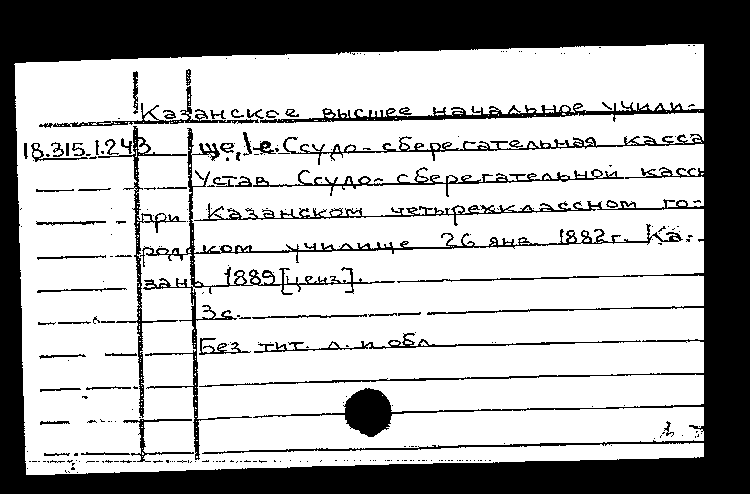 Казанское высшее начальное учили-
18.315.1.243 ще, 1-е. Ссудо-сберегательная касса
Устав Ссудо-сберегательной кассы
при Казанском четырехклассном го-
родском училище 26 янв. 1882 г. Ка-
зань, 1889 [ценз.].
3 с.
Без тит. л. и обл.